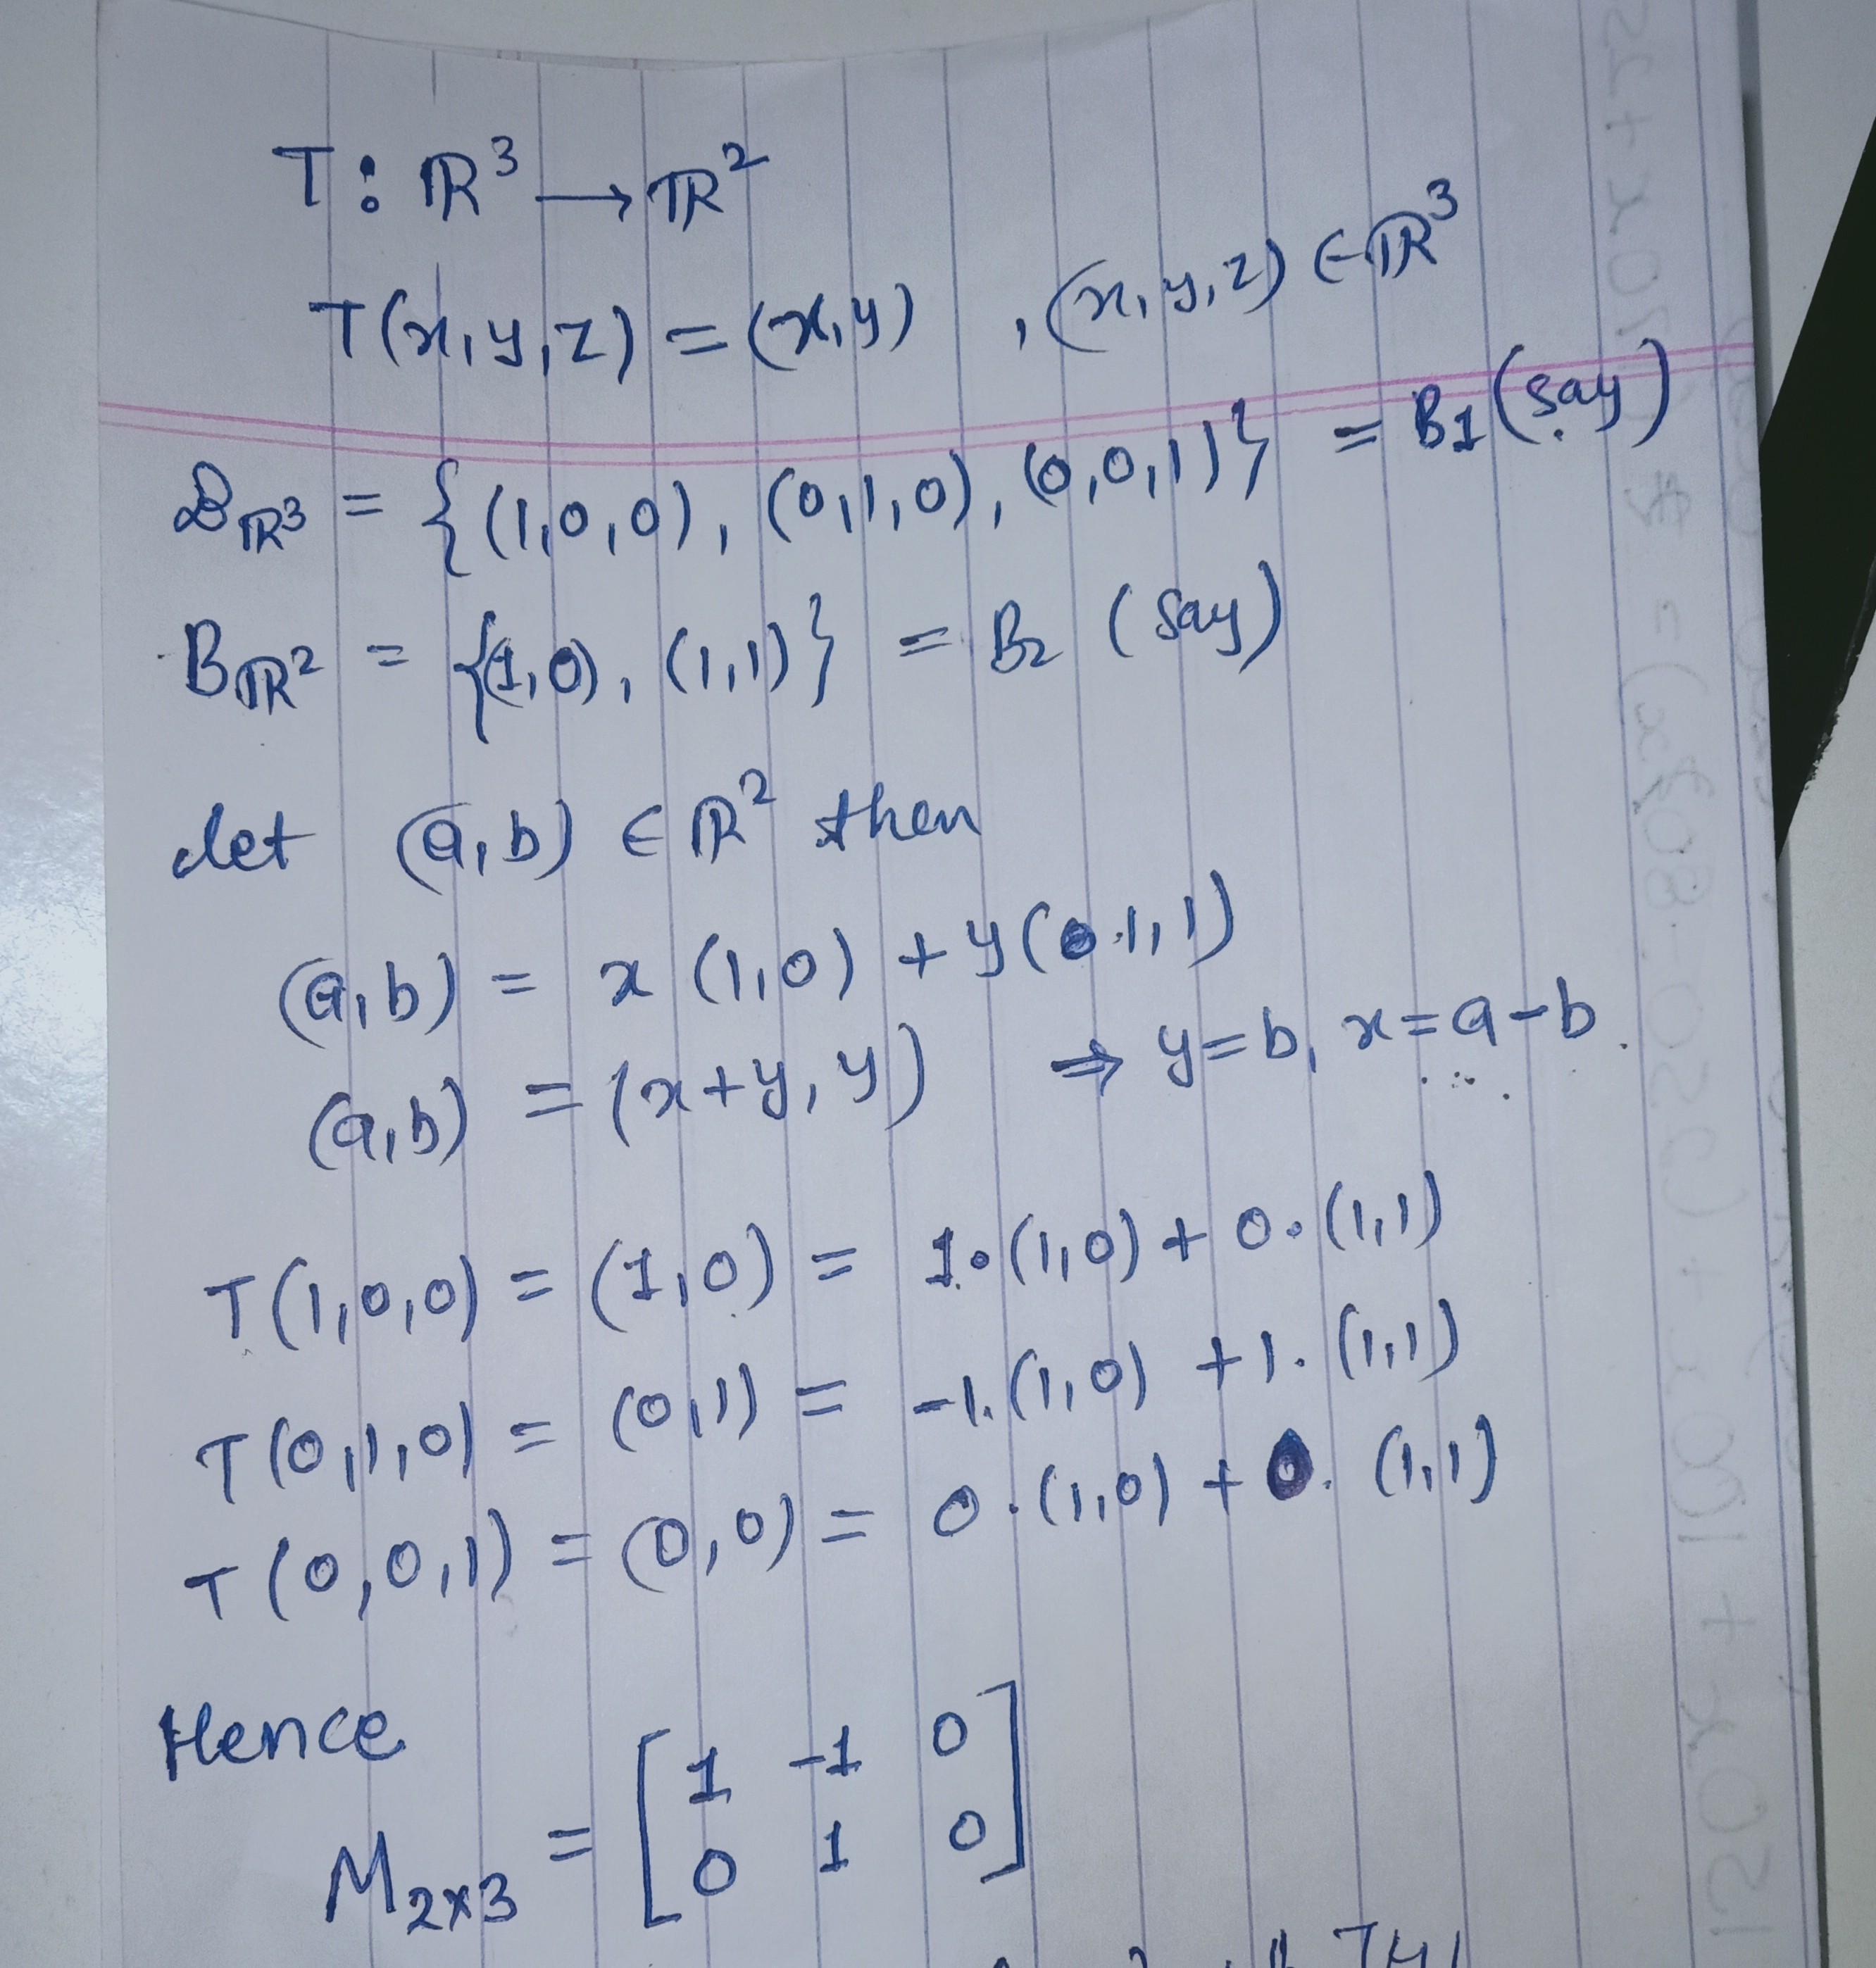 T : ℝ³ → ℝ²
T(x, y, z) = (x, y) , (x, y, z) ∈ ℝ³
B_ℝ³ = {(1,0,0), (0,1,0), (0,0,1)} = B1 (say)
B_ℝ² = {(1,0), (1,1)} = B₂ (say)
let (a,b) ∈ ℝ² then
(a,b) = x (1,0) + y (1,1)
(a,b) = (x+y, y) ⇒ y=b, x=a-b.
T(1,0,0) = (1,0) = 1.(1,0) + 0.(1,1)
T(0,1,0) = (0,1) = -1.(1,0) + 1.(1,1)
T(0,0,1) = (0,0) = 0.(1,0) + 0.(1,1)
Hence
M₂ₓ₃ = [1 -1 0
0 1 0]